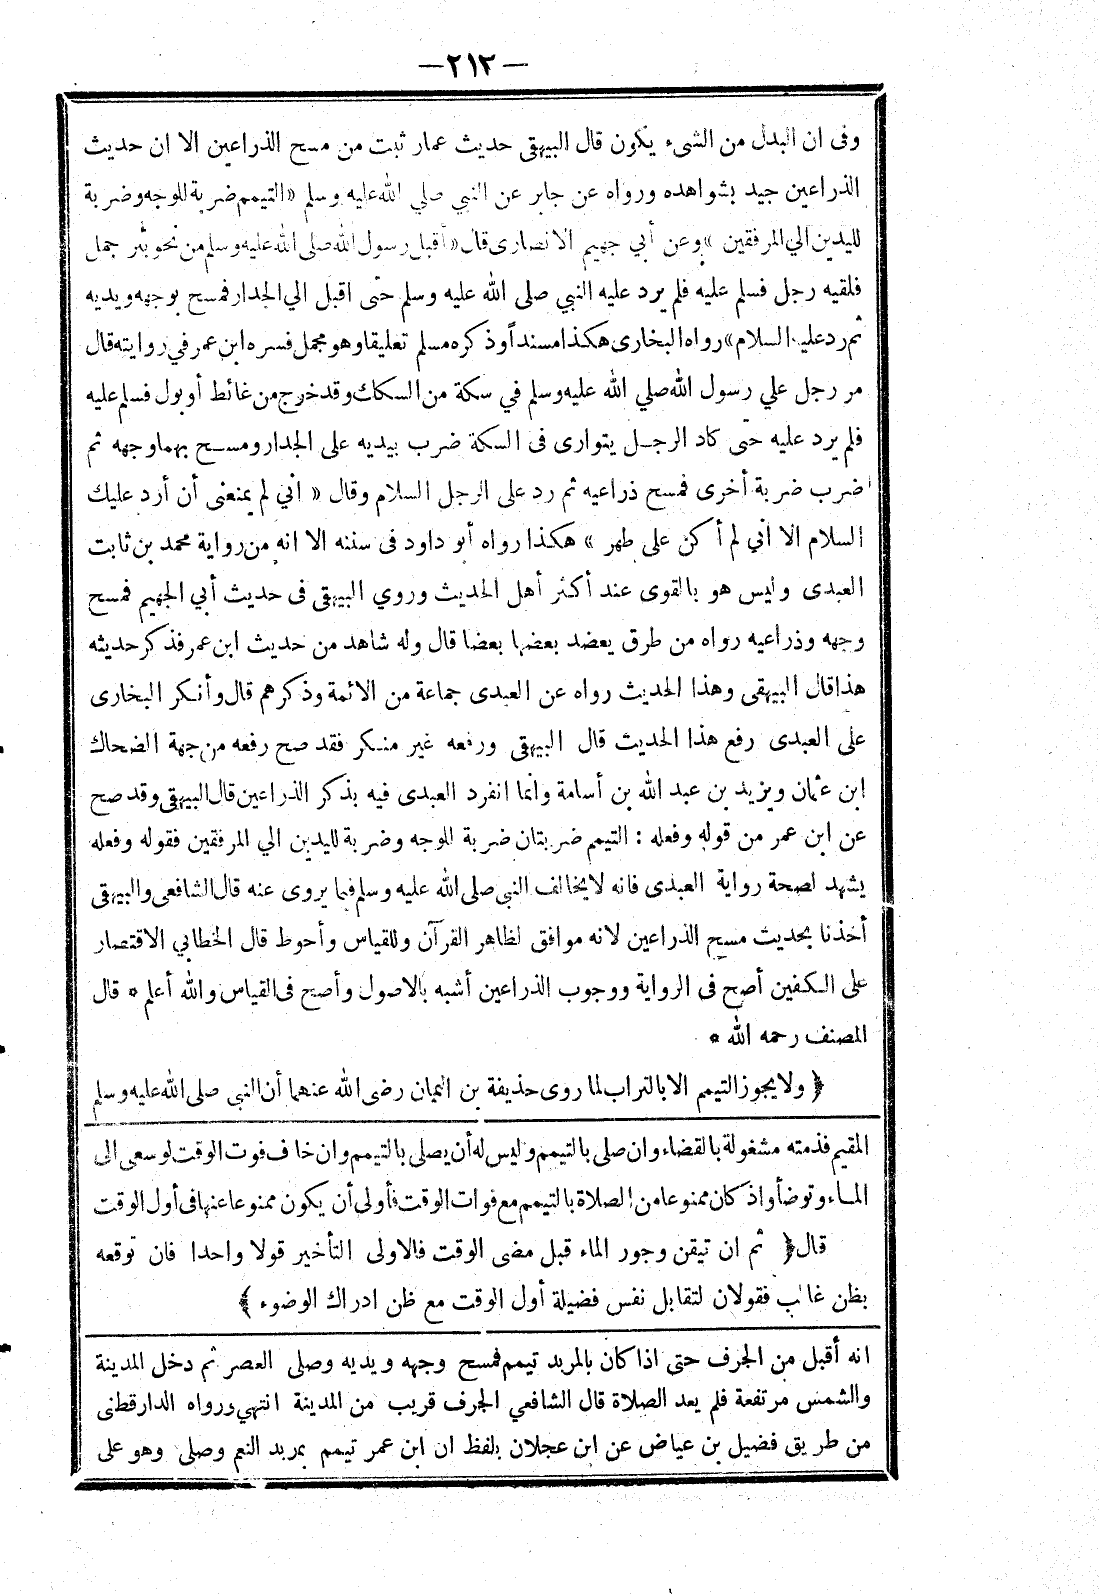 —٢١٢—
وفى ان البدل من الشىء يكون قال البيهقى حديث عمار ثبت من مسح الذراعين الا ان حديث
الذراعين جيد بشواهده ورواه عن جابر عن النبي صلي الله عليه وسلم «التيمم ضربة للوجه وضربة
لليدين الي المرفقين » وعن أبي جهيم الانصارى قال «أقبل رسول الله صلى الله عليه وسلم من نحو بئر جمل
فلقيه رجل فسلم عليه فلم يرد عليه النبي صلى الله عليه وسلم حتى اقبل الي الجدار فمسح بوجهه ويديه
ثم رد عليه السلام» رواه البخارى هكذا مسنداً وذكره مسلم تعليقا وهو مجمل فسره ابن عمر في روايته قال
مر رجل علي رسول الله صلي الله عليه وسلم في سكة من السكك وقد خرج من غائط أو بول فسلم عليه
فلم يرد عليه حتى كاد الرجل يتوارى فى السكة ضرب بيديه على الجدار ومسح بهما وجهه ثم
ضرب ضربة أخرى فمسح ذراعيه ثم رد على الرجل السلام وقال « اني لم يمنعنى أن أرد عليك
السلام الا اني لم أكن على طهر » هكذا رواه أبو داود فى سننه الا انه من رواية محمد بن ثابت
العبدى وليس هو بالقوى عند أكثر أهل الحديث وروي البيهقى فى حديث أبي الجهيم فمسح
وجهه وذراعيه رواه من طرق يعضد بعضها بعضا قال وله شاهد من حديث ابن عمر فذكر حديثه
هذا قال البيهقى وهذا الحديث رواه عن العبدى جماعة من الائمة وذكرهم قال وأنكر البخارى
على العبدى رفع هذا الحديث قال البيهقى ورفعه غير منكر فقد صح رفعه من جهة الضحاك
ابن عثمان ويزيد بن عبد الله بن أسامة وانما انفرد العبدى فيه بذكر الذراعين قال البيهقى وقد صح
عن ابن عمر من قوله وفعله : التيمم ضربتان ضربة للوجه وضربة لليدين الي المرفقين فقوله وفعله
يشهد لصحة رواية العبدى فانه لا يخالف النبي صلى الله عليه وسلم فيما يروى عنه قال الشافعى والبيهقى
أخذنا بحديث مسح الذراعين لانه موافق لظاهر القرآن وللقياس وأحوط قال الخطابي الاقتصار
على الكفين أصح فى الرواية ووجوب الذراعين أشبه بالاصول وأصح فى القياس والله أعلم * قال
المصنف رحمه الله *
﴿ ولا يجوز التيمم الا بالتراب لما روى حذيفة بن اليمان رضى الله عنهما أن النبى صلى الله عليه وسلم
المقيم فذمته مشغولة بالقضاء وان صلى بالتيمم وليس له أن يصلى بالتيمم وان خاف فوت الوقت لو سعى الى
الماء وتوضأ واذ كان ممنوعا من الصلاة بالتيمم مع فوات الوقت فأولى أن يكون ممنوعا عنها فى أول الوقت
قال ﴿ ثم ان تيقن وجور الماء قبل مضى الوقت فالاولى التأخير قولا واحدا فان توقعه
بظن غالب فقولان لتقابل نفس فضيلة أول الوقت مع ظن ادراك الوضوء ﴾
انه أقبل من الجرف حتى اذا كان بالمربد تيمم فمسح وجهه ويديه وصلى العصر ثم دخل المدينة
والشمس مرتفعة فلم يعد الصلاة قال الشافعي الجرف قريب من المدينة انتهي ورواه الدارقطنى
من طريق فضيل بن عياض عن ابن عجلان بلفظ ان ابن عمر تيمم بمربد النعم وصلى وهو على